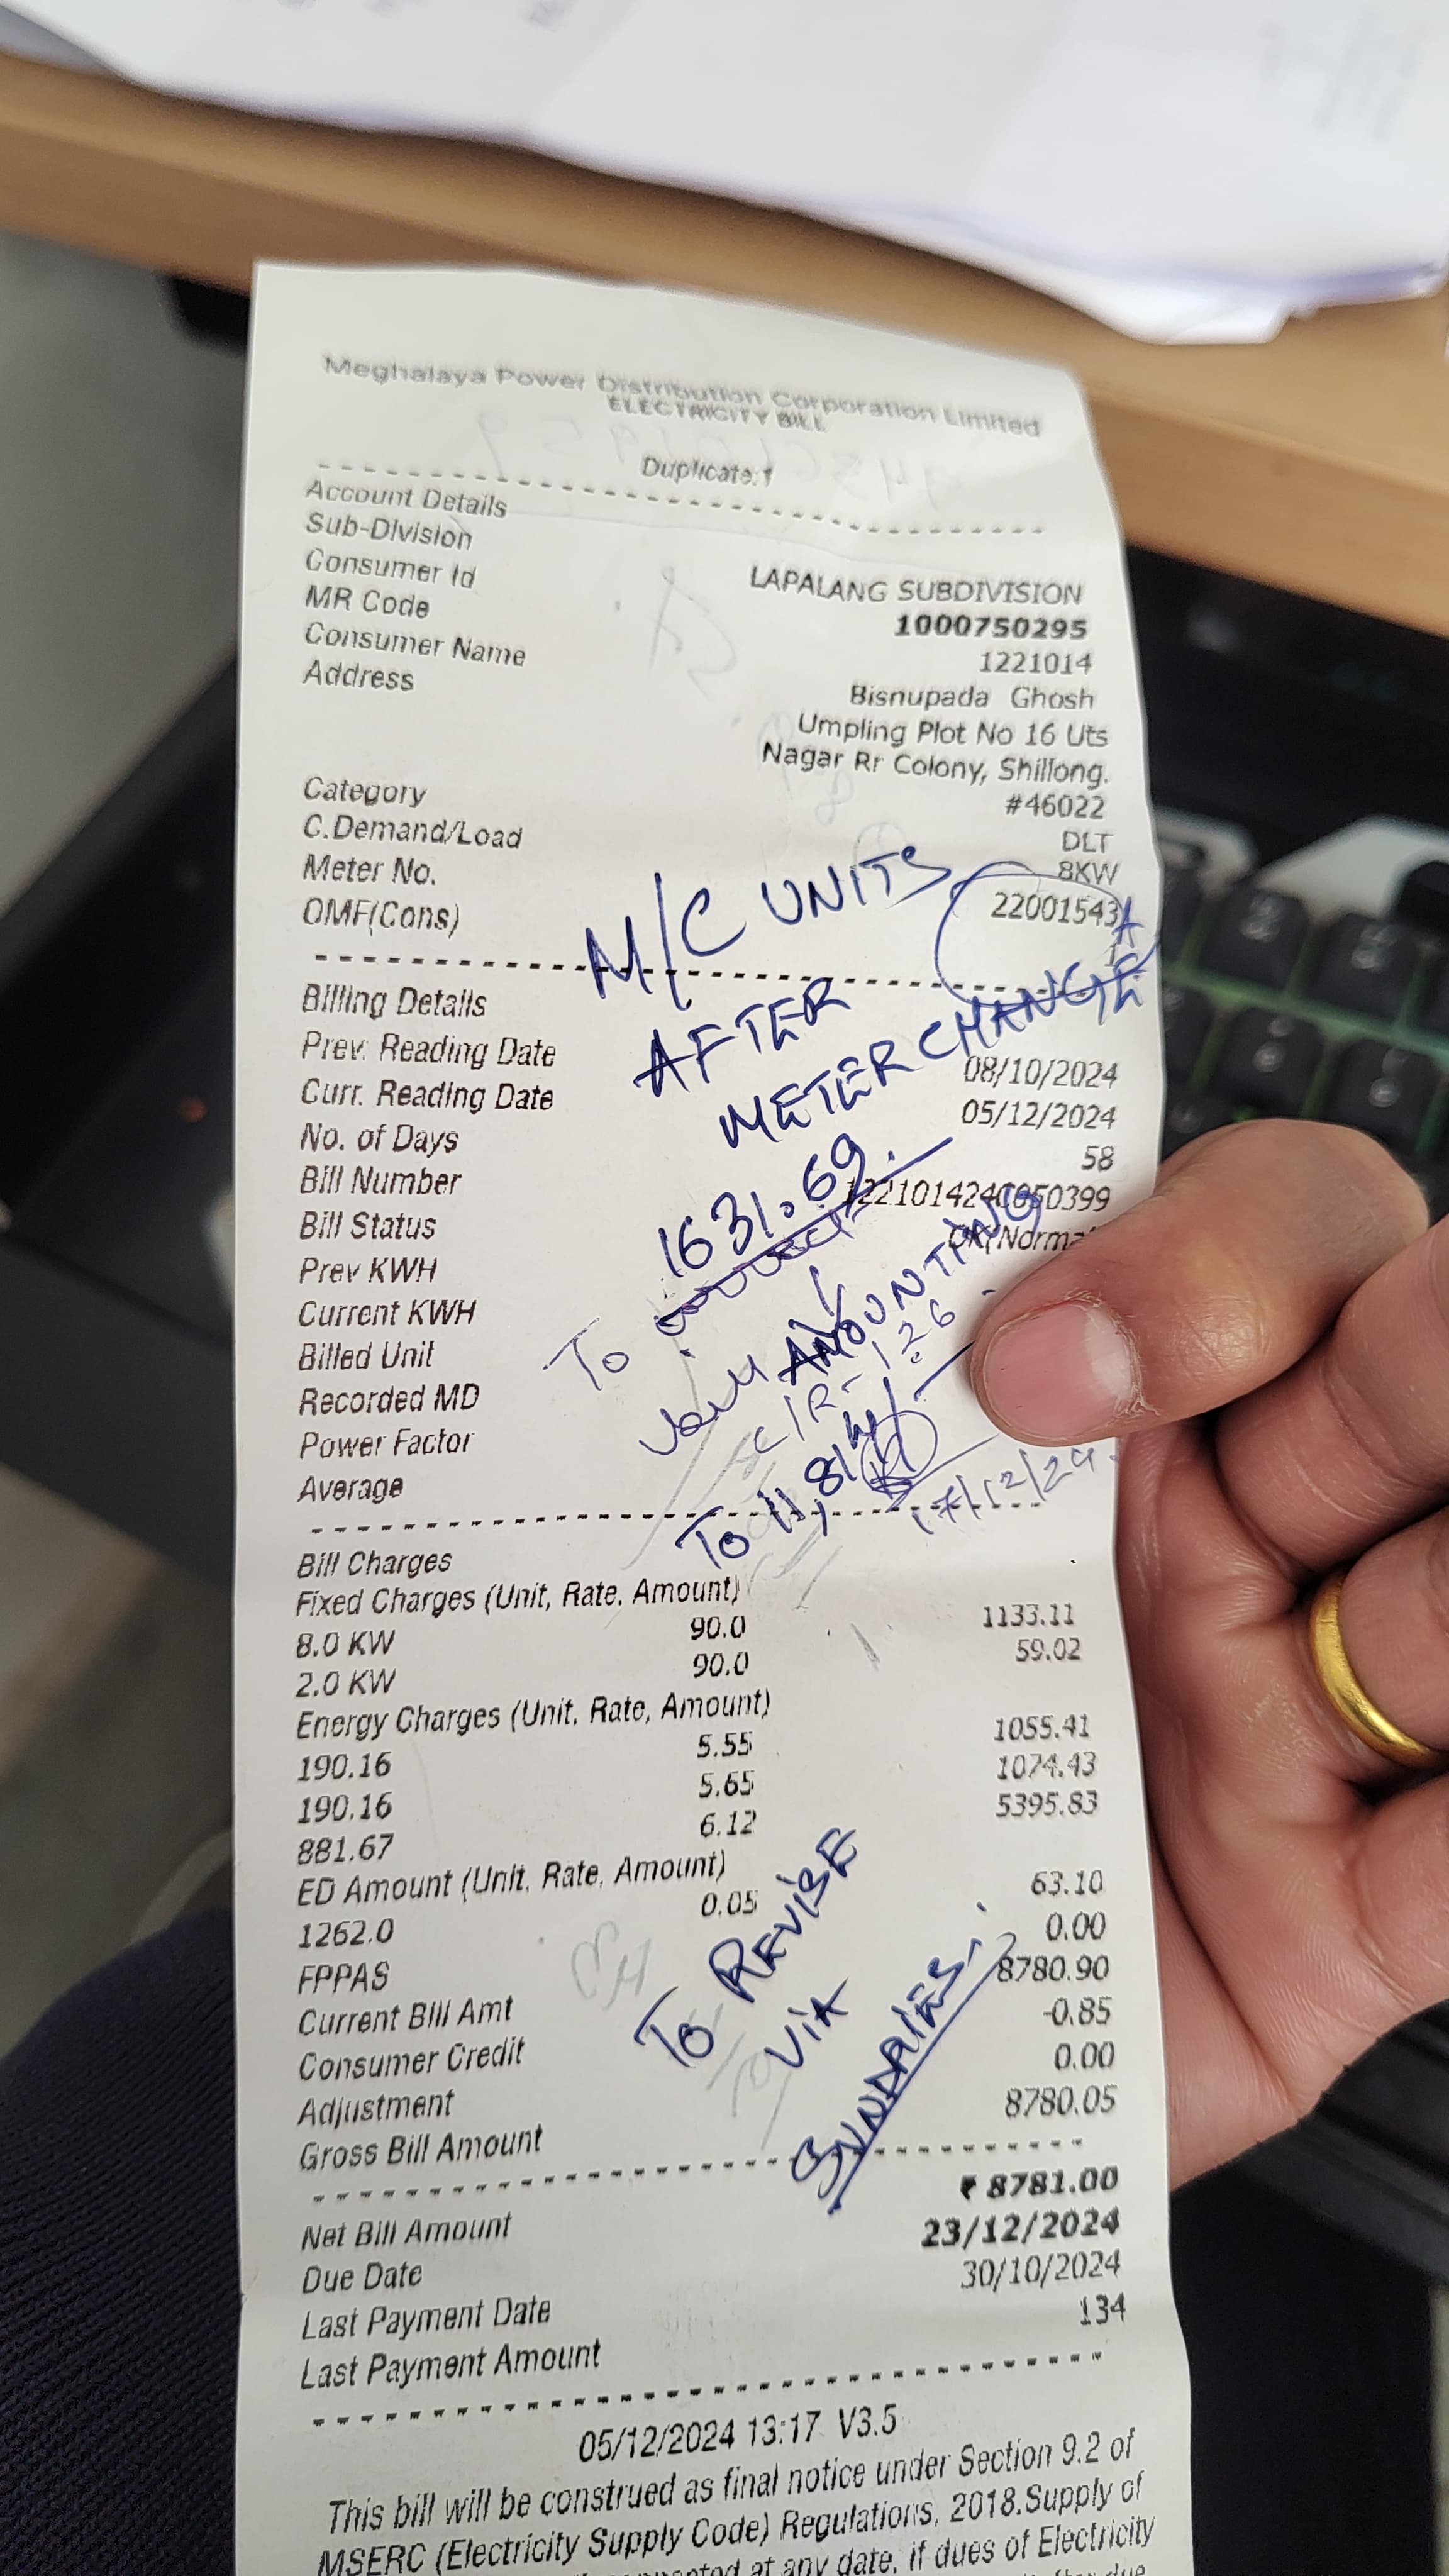 Meghalaya Power Distribution Corporation Limited
ELECTRICITY BILL
Duplicate:1
Account Details
Sub-Division LAPALANG SUBDIVISION
Consumer Id 1000750295
MR Code 1221014
Consumer Name Bisnupada Ghosh
Address Umpling Plot No 16 Uts
Nagar Rr Colony, Shillong.
#46022
Category DLT
C.Demand/Load 8KW
Meter No. 22001543
OMF(Cons) 1
M/C UNITS
AFTER
METER CHANGE
1631.69.
To correct
AMOUNTING
To 11,814/-
17/12/24.
Billing Details
Prev. Reading Date 08/10/2024
Curr. Reading Date 05/12/2024
No. of Days 58
Bill Number
Bill Status
Prev KWH
Current KWH
Billed Unit
Recorded MD
Power Factor
Average
Bill Charges
Fixed Charges (Unit, Rate, Amount)
8.0 KW 90.0 1133.11
2.0 KW 90.0 59.02
Energy Charges (Unit, Rate, Amount)
190.16 5.55 1055.41
190.16 5.65 1074.43
881.67 6.12 5395.83
ED Amount (Unit, Rate, Amount)
1262.0 0.05 63.10
FPPAS 0.00
Current Bill Amt 8780.90
Consumer Credit -0.85
Adjustment 0.00
Gross Bill Amount 8780.05
To REVISE
VIA
SUNDRIES.
Net Bill Amount ₹ 8781.00
Due Date 23/12/2024
Last Payment Date 30/10/2024
Last Payment Amount 134
05/12/2024 13:17 V3.5
This bill will be construed as final notice under Section 9.2 of
MSERC (Electricity Supply Code) Regulations, 2018.Supply of
at any date, if dues of Electricity